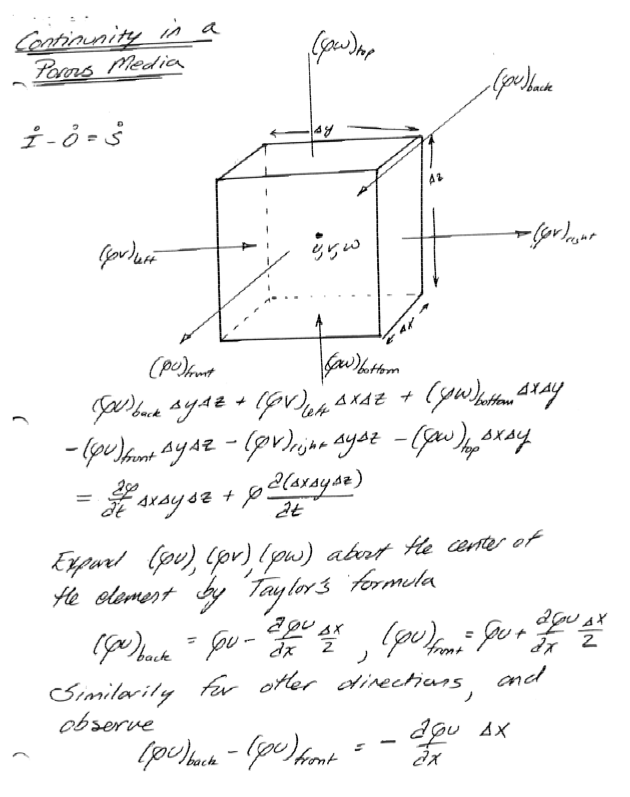 Continunity in a
Porous Media
İ - Ȯ = Ṡ
(ρw)top
(ρu)back
Δy
Δz
(ρv)left
u, v, w
(ρv)right
Δx
(ρu)front
(ρw)bottom
(ρu)back ΔyΔz + (ρv)left ΔxΔz + (ρw)bottom ΔxΔy
-(ρu)front ΔyΔz - (ρv)right ΔyΔz - (ρw)top ΔxΔy
= ∂ρ/∂t ΔxΔyΔz + ρ ∂(ΔxΔyΔz)/∂t
Expand (ρu), (ρv), (ρw) about the center of
the element by Taylor's formula
(ρu)back = ρu - ∂ρu/∂x Δx/2 , (ρu)front = ρu + ∂ρu/∂x Δx/2
Similarily for other directions, and
observe
(ρu)back - (ρu)front = - ∂ρu/∂x Δx